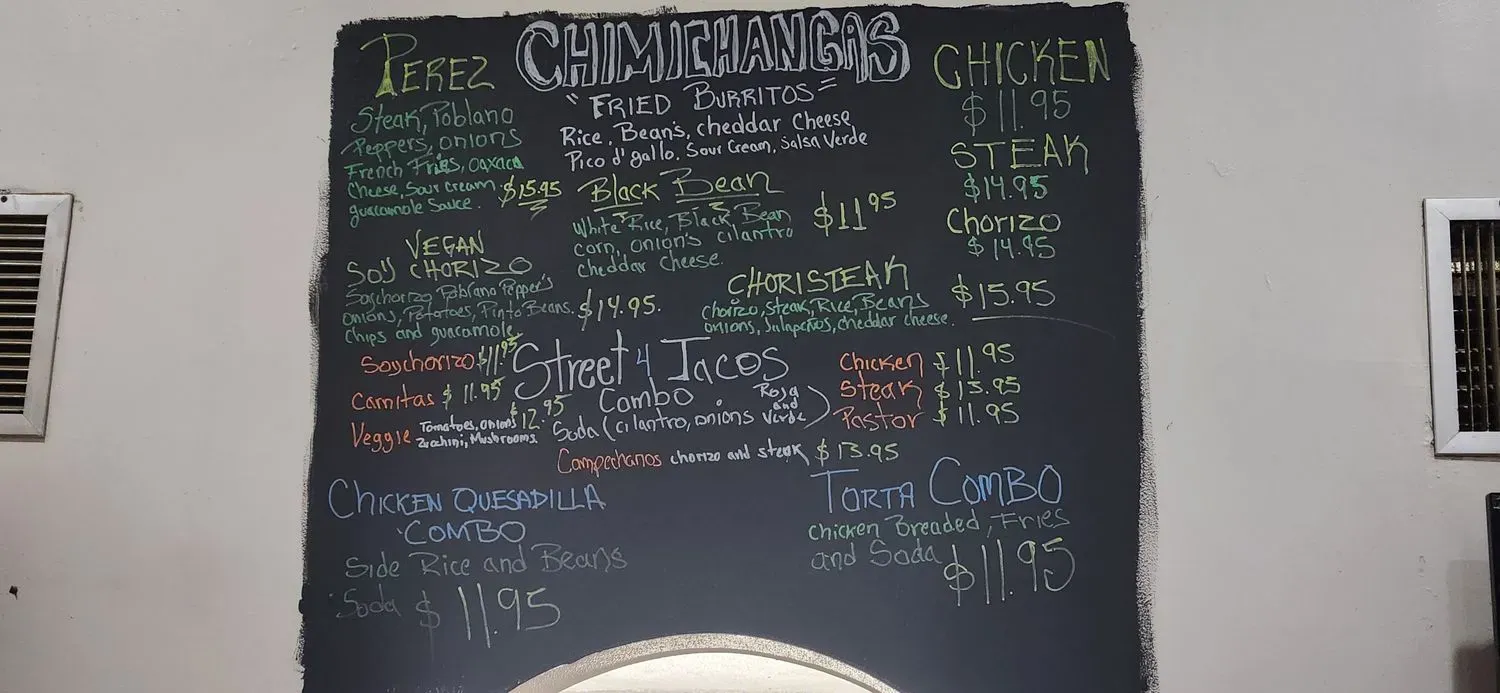 CHIMICHANGAS
"FRIED BURRITOS"
Rice, Bean's, cheddar Cheese
Pico d'gallo. Sour Cream, Salsa Verde
PEREZ
Steak, Poblano
Peppers, onions
French Fries, oaxaca
Cheese, Sour cream. $15.95
guacamole Sauce.
VEGAN
SOY CHORIZO
Soychorizo, Poblano Pepper's
onions, Potatoes, Pinto Beans. $14.95.
chips and guacamole
Black Bean
White Rice, Black Bean $11.95
corn, onion's cilantro
cheddar cheese.
CHICKEN
$11.95
STEAK
$14.95
Chorizo
$14.95
CHORISTEAK
chorizo, steak, Rice, Beans $15.95
onions, Jalapeños, cheddar cheese.
Street 4 Tacos
Combo
Soda (cilantro, onions Roja and Verde)
Soychorizo $11.95
Carnitas $11.95
Veggie Tomatoes, onions $12.95
Zucchini, Mushrooms.
Chicken $11.95
Steak $13.95
Pastor $11.95
Campechanos chorizo and steak $13.95
CHICKEN QUESADILLA
COMBO
Side Rice and Beans
Soda $11.95
TORTA COMBO
Chicken Breaded, Fries
and Soda $11.95